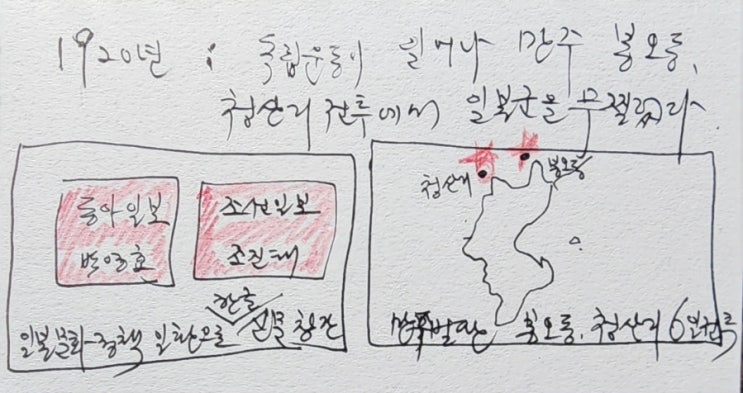 1920년 : 독립운동이 일어나 만주 봉오동,
청산리 전투에서 일본군을 무찔렀다
동아일보
박영효
조선일보
조진태
한글
일본문화정책 일환으로 신문 창간
청산리
봉오동
봉오동, 청산리 6일전투